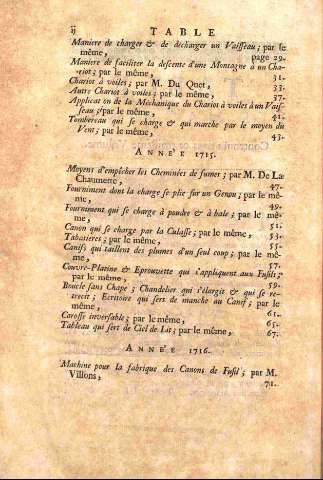 ij TABLE
Maniere de charger & de décharger un Vaisseau; par le
même, page 29.
Maniere de faciliter la descente d'une Montagne à un Cha-
riot; par le même, 31.
Chariot à voiles; par M. Du Quet, 33.
Autre Chariot à voiles; par le même, 37.
Application de la Méchanique du Chariot à voiles à un Vais-
seau; par le même, 41.
Tombereau qui se charge & qui marche par le moyen du
Vent; par le même, 43.
ANNÉE 1715.
Moyens d'empêcher les Cheminées de fumer; par M. De La
Chaumette, 47.
Fourniment dont la charge se plie sur un Genou; par le mê-
me, 49.
Fourniment qui se charge à poudre & à bale; par le mê-
me, 51.
Canon qui se charge par la Culasse; par le même, 53.
Tabatieres; par le même, 55.
Canifs qui taillent des plumes d'un seul coup; par le mê-
me, 57.
Couvre-Platine & Eprouvette qui s'appliquent aux Fusils;
par le même, 59.
Boucle sans Chape; Chandelier qui s'élargit & qui se re-
trecit; Ecritoire qui sert de manche au Canif; par le
même, 61.
Carosse inversable; par le même, 65.
Tableau qui sert de Ciel de Lit; par le même, 67.
ANNÉE 1716.
Machine pour la fabrique des Canons de Fusil; par M.
Villons, 71.